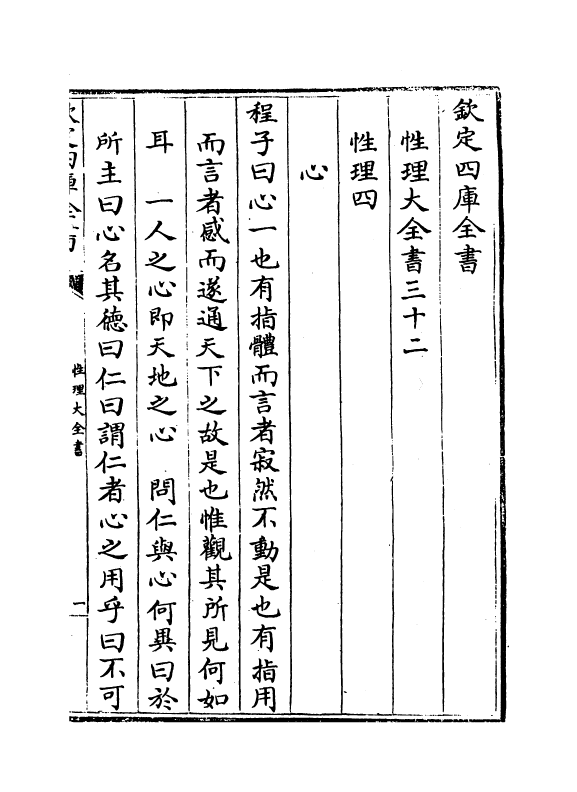 欽定四庫全書
性理大全書三十二
性理四
心
程子曰心一也有指體而言者寂然不動是也有指用
而言者感而遂通天下之故是也惟觀其所見何如
耳　一人之心即天地之心　問仁與心何異曰於
所主曰心名其德曰仁曰謂仁者心之用乎曰不可
欽定四庫全書
性理大全書
一